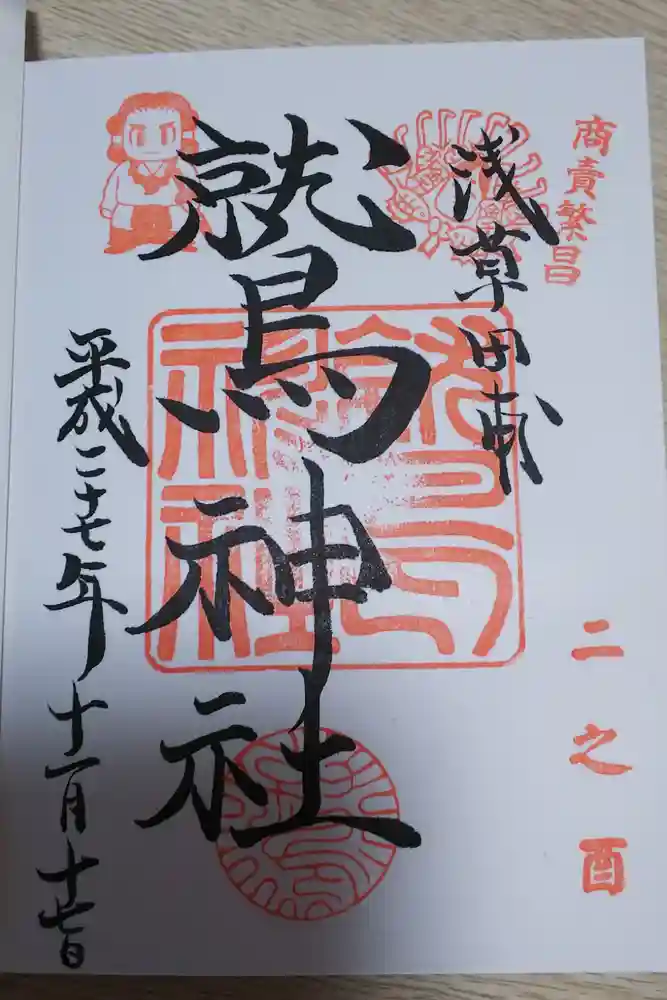 商賣繁昌
二之酉
浅草田甫
鷲神社
平成二十七年十一月十七日